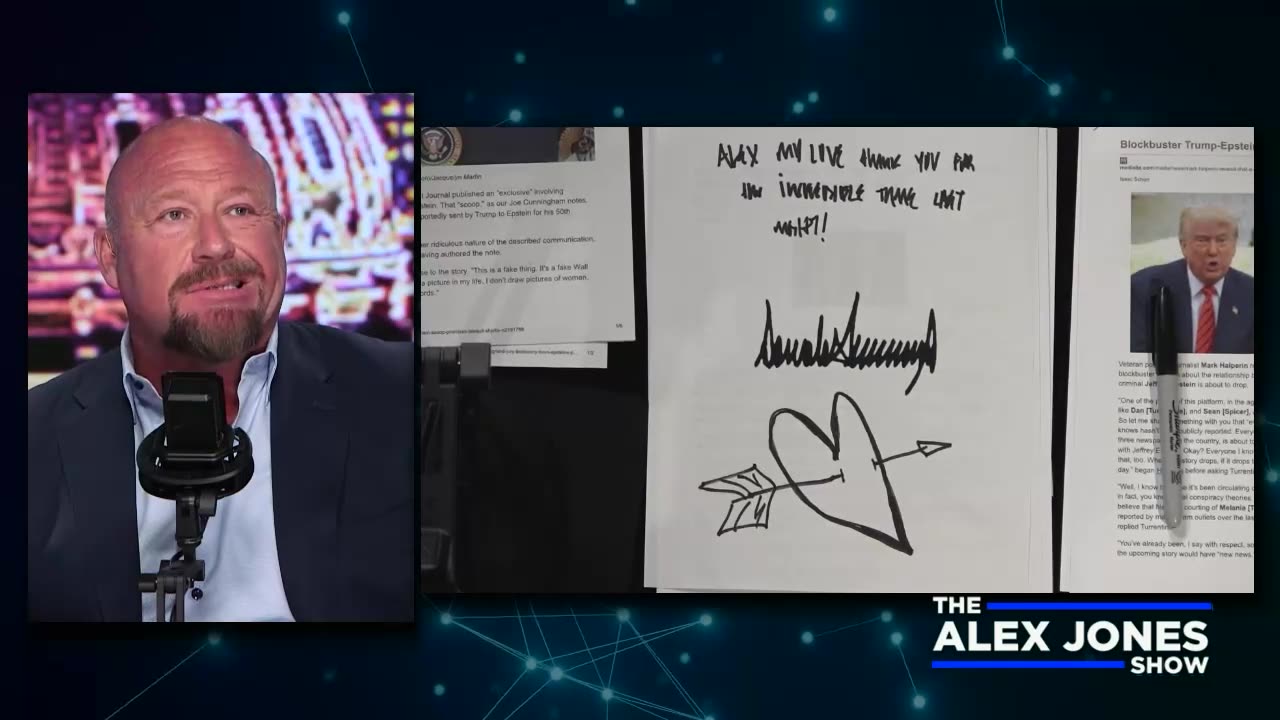 Jacquelyn Martin
Journal published an "exclusive" involving
That "scoop," as our Joe Cunningham notes,
sent by Trump to Epstein for his 50th
ridiculous nature of the described communication,
authored the note.
to the story. "This is a fake thing. It's a fake Wall
a picture in my life. I don't draw pictures of women.
1/6
1/2
ALEX MY LOVE THANK YOU FOR
THE INCREDIBLE TIME LAST
NIGHT!
Blockbuster Trump-Epstein
Veteran Mark Halperin
blockbuster about the relationship
criminal is about to drop.
"One of the of this platform, in the
like Dan and Sean [Spicer],
So let me with you that
knows publicly reported.
three the country, is about to
with Jeffrey Okay? Everyone I
that, too. story drops, if it drops
day," began before asking
"Well, I know it's been circulating
in fact, you conspiracy theories.
believe that courting of Melania
reported by outlets over the
replied
"You've already been, I say with respect,
the upcoming story would have "new news.
THE
ALEX JONES
SHOW